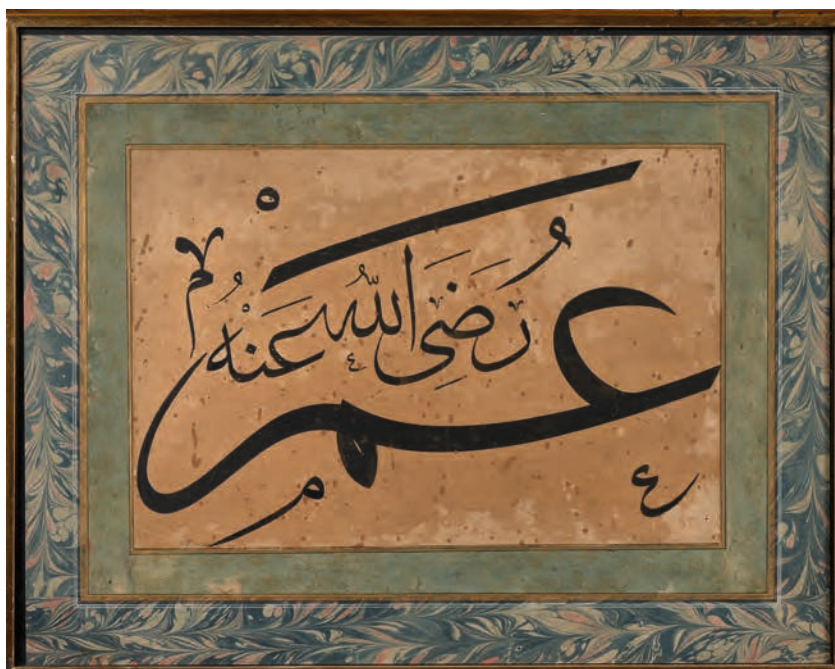 عمر رضى الله عنه